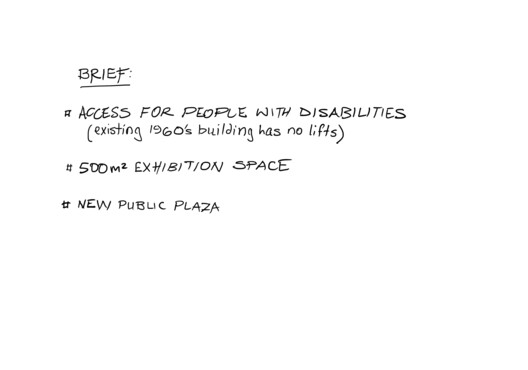 BRIEF:
# ACCESS FOR PEOPLE WITH DISABILITIES
(existing 1960's building has no lifts)
# 500m² EXHIBITION SPACE
# NEW PUBLIC PLAZA